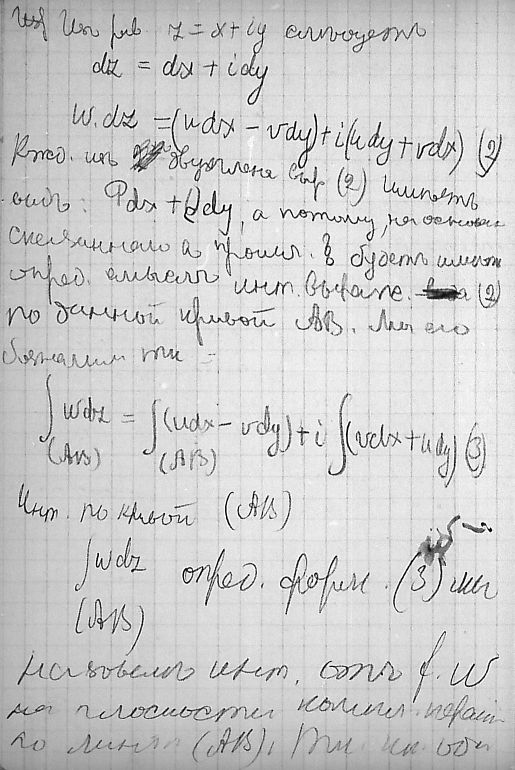 Изъ рав. z = x + iy слѣдуетъ
dz = dx + idy
W.dz = (udx − vdy) + i(udy + vdx) (2)
Кжд. изъ двучлена выр. (2) имѣетъ
видъ: Pdx + Qdy, а потому, на основан
сказаннаго в прошл. § будетъ имѣть
опред. смыслъ инт. выраже. (2)
по данной кривой AB. Мы его
обозначимъ
∫ Wdz = ∫ (udx − vdy) + i ∫ (vdx + udy) (3)
(AB) (AB)
Инт. по кривой (AB)
∫ Wdz опред. форм. (3) мы
(AB)
назовемъ инт. отъ f. W
на плоскости компл. перем
по линіи (AB).